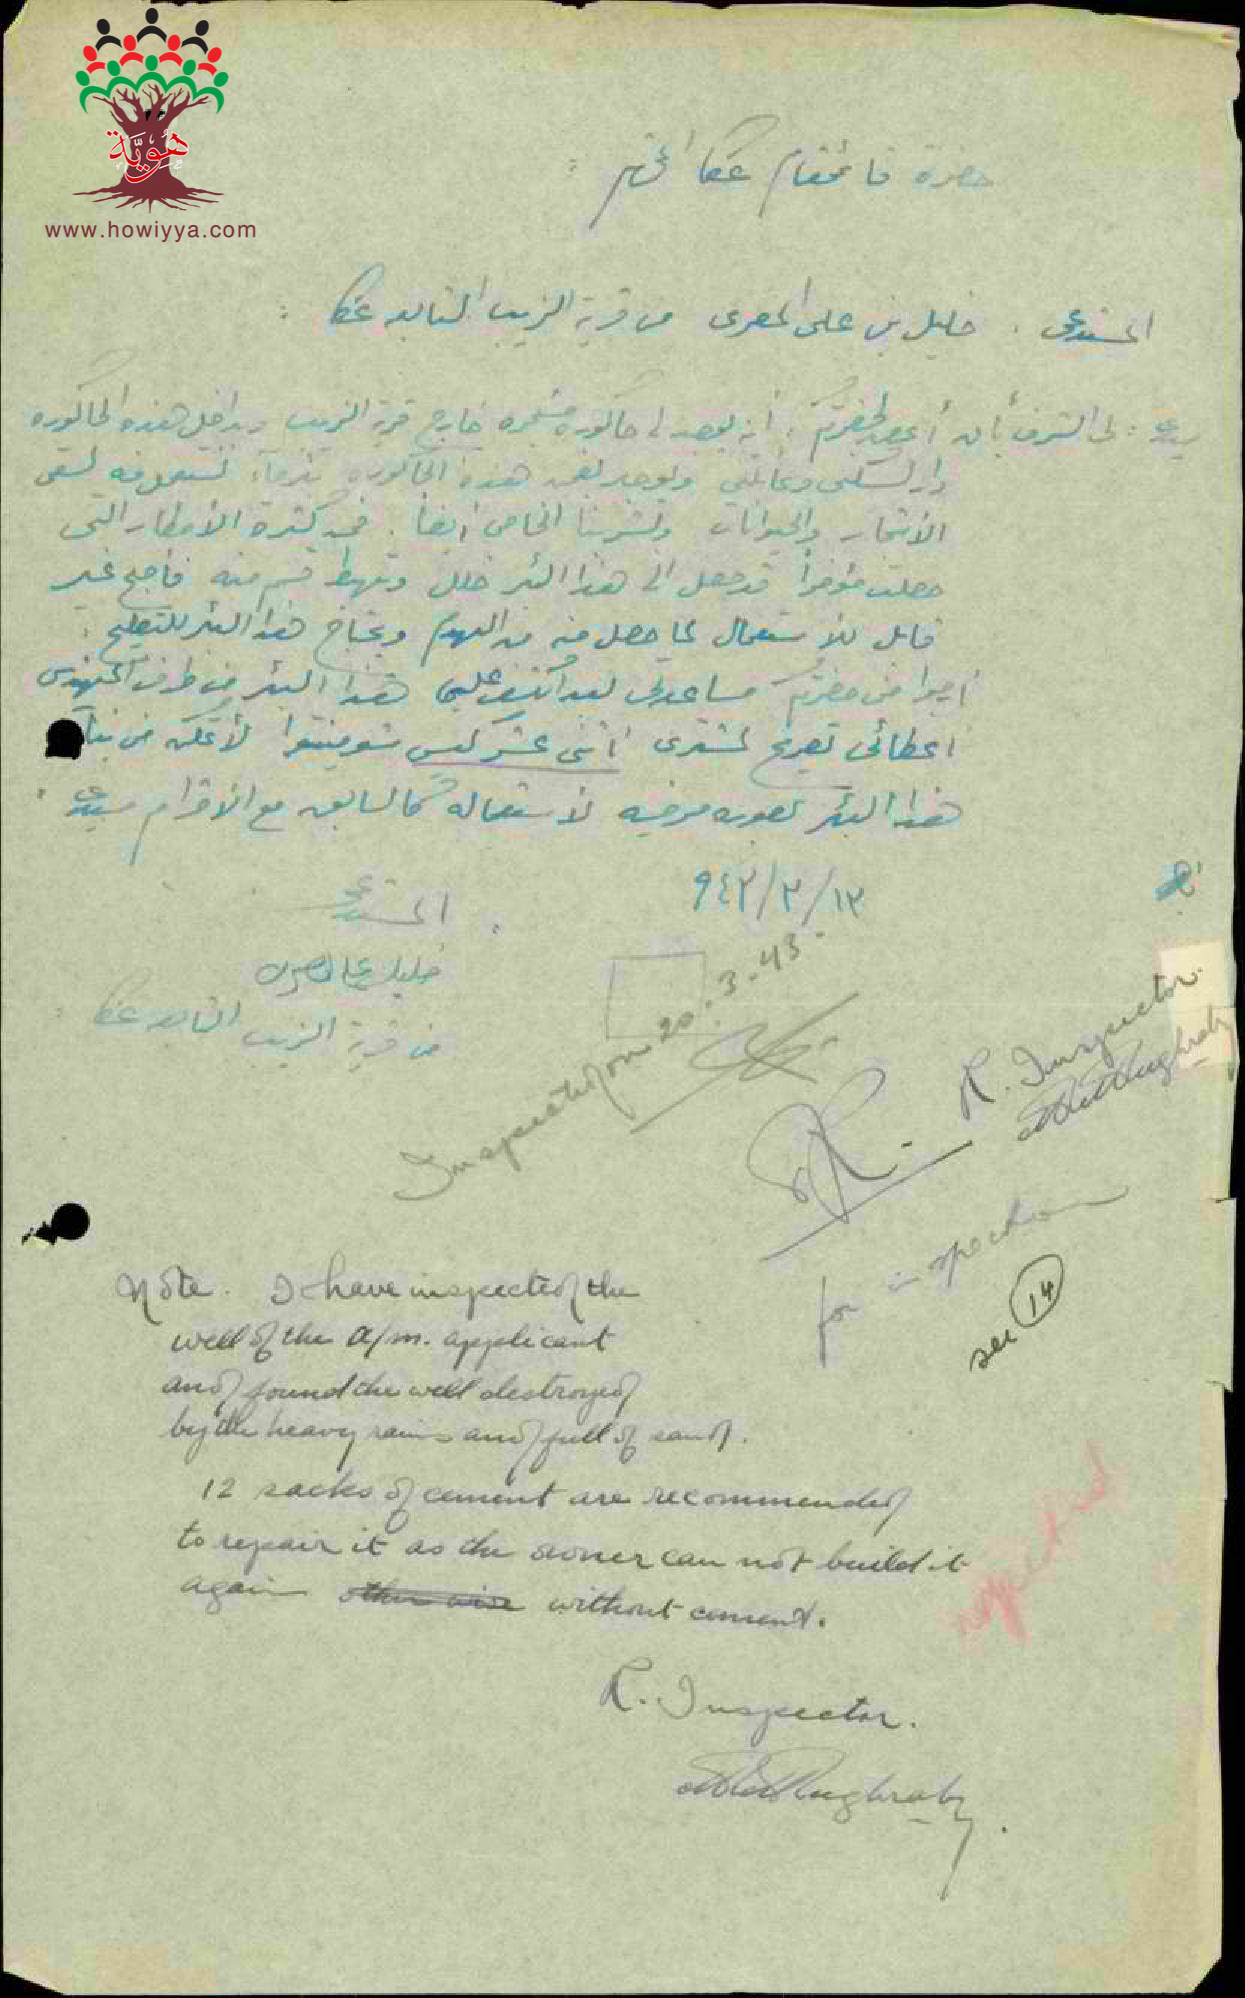 هُويَّة
www.howiyya.com
حضرة قائمقام عكا المحترم :
المستدعي : خليل بن علي المصري من قرية الزيب التابعه عكا :
سيدي : لي الشرف بأن أعرض لحضرتكم . أنه يوجد لي حاكوره مشجره خارج قرية الزيب وبداخل هذه الحاكوره
دار لسكني وعائلتي ويوجد بهذه الحاكوره بئر ماء نستعمله لسقي
الأشجار والحيوانات ولشربنا الخاص أيضاً . فمن كثرة الأمطار التي
حصلت مؤخراً قد حصل الى هذا البئر خلل وتهبط قسم منه فأصبح غير
قابل للاستعمال لما حصل فيه من الهدم ويحتاج هذا البئر للتصليح .
أرجوا من حضرتكم مساعدتي بعد الكشف على هذا البئر من طرف المهندس
اعطائي تصريح لمشترى أثني عشر كيس شمينتوا لأتمكن من بناء
هذا البئر بصوره مرضيه لأستعماله كالسابق مع الاحترام سيدي .
٩٤٣/٣/١٣
المستدعي
خليل علي المصري
من قرية الزيب التابعه عكا
Inspected on 20.3.43.
R. Inspector
for inspection
see 14
Note. I have inspected the
well of the a/m. applicant
and found the well destroyed
by the heavy rains and full of sand.
12 sacks of cement are recommended
to repair it as the owner can not build it
again other wise without cement.
rejected
R. Inspector.